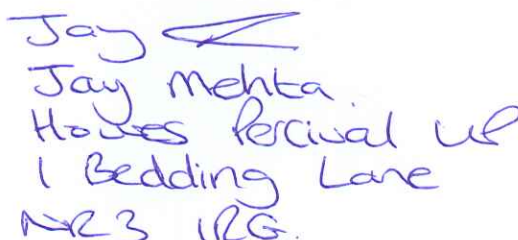 Jay
Jay Mehta
Howes Percival LLP
1 Bedding Lane
NR3 1RG.